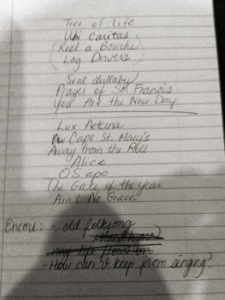 Tree of Life
Ubi Caritas
Reel a Bouche
Log Drivers
Seal Lullaby
Prayer of St. Francis
You Are the New Day
Lux Aeterna
Cape St. Mary's
Away from the Roll
Alice
O Sapo
The Gate of the Year
Ain't No Grave
Encore: - old folksong
- my life flows on
- How can I keep from singing?